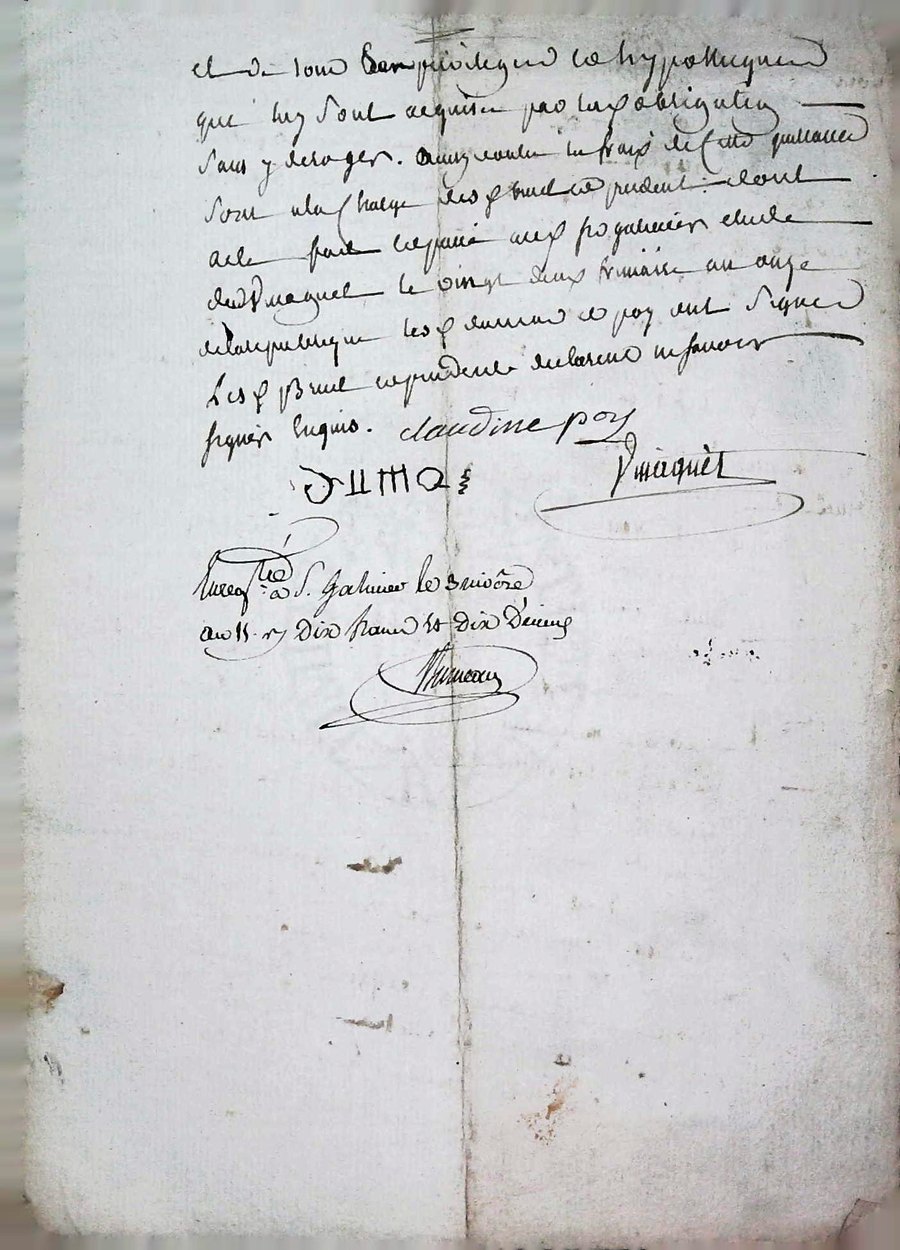 et de tous les privileges et hypotheques
qui luy sont acquise par lad obligation
sans y deroger. au moyen les frais de cette quittance
sont a la charge des d bruel et prudent dont
acte fait et passé aud st galmier etude
dud Vmaguet le vingt deux frimaire an onze
de la republique les d dumas et poy ont signes
Les d Bruel et prudent declarent ne savoir
signer Enquis. claudine poy
DUMAS
Vmaguet
Enregtré à St. Galmier le 3 nivôse
an 11. r/ Dix francs et dix Décimes